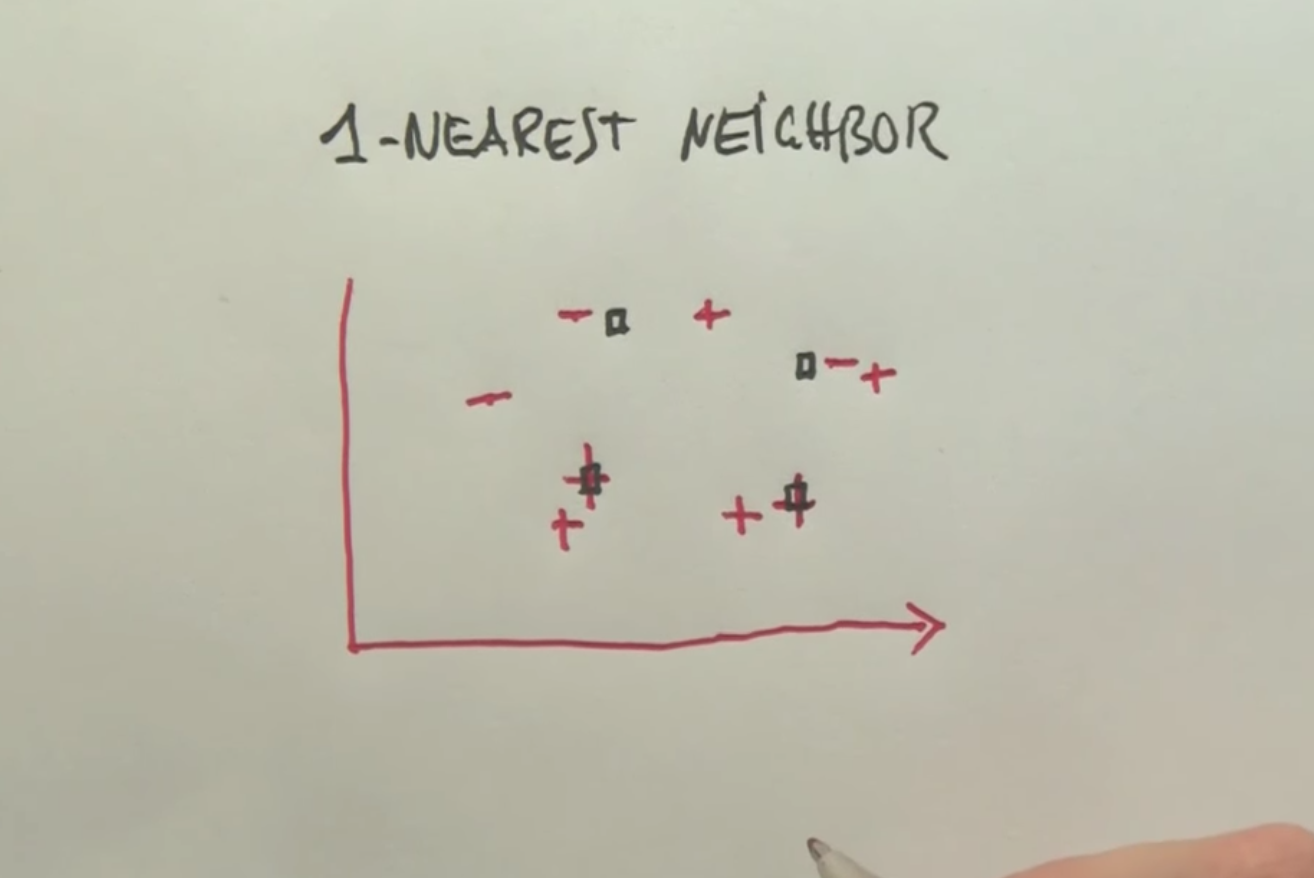 1-NEAREST NEIGHBOR
- +
- +
-
+
+ +
+